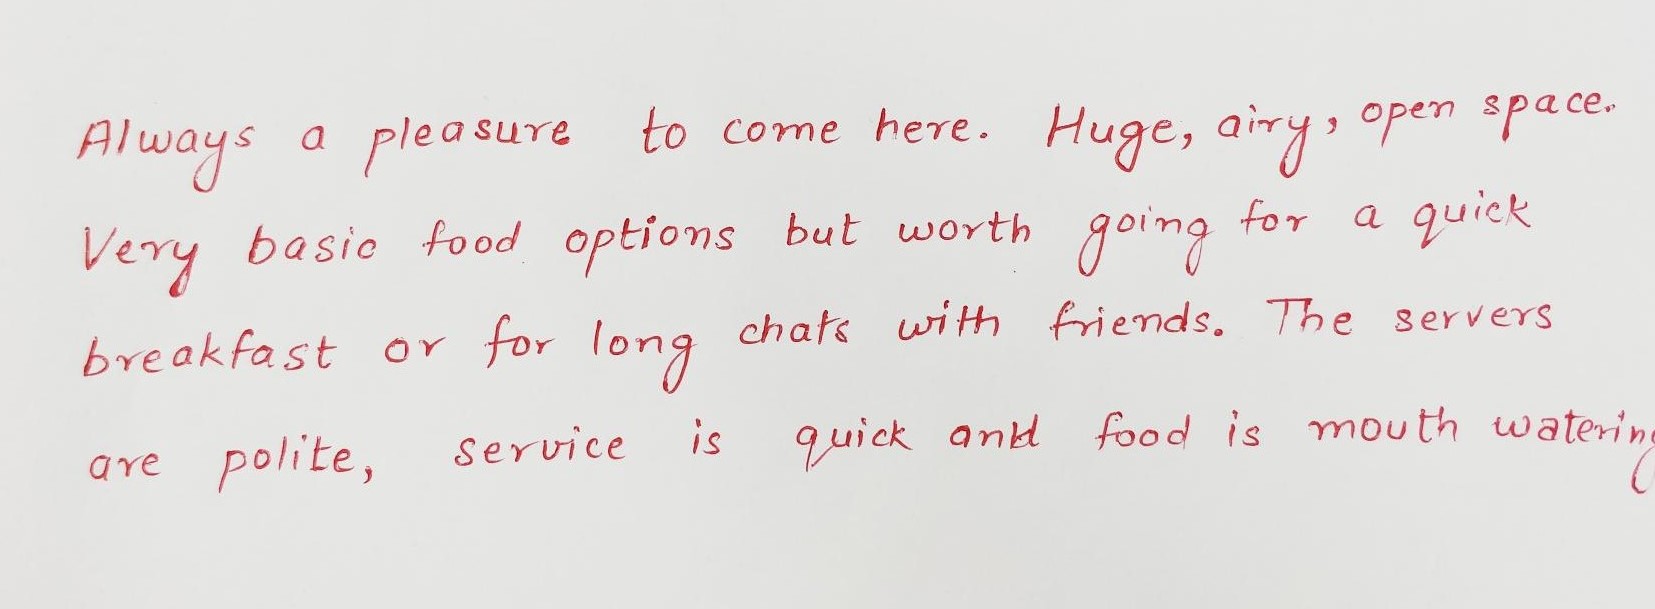 Always a pleasure to come here. Huge, airy, open space.
Very basic food options but worth going for a quick
breakfast or for long chats with friends. The servers
are polite, service is quick and food is mouth watering